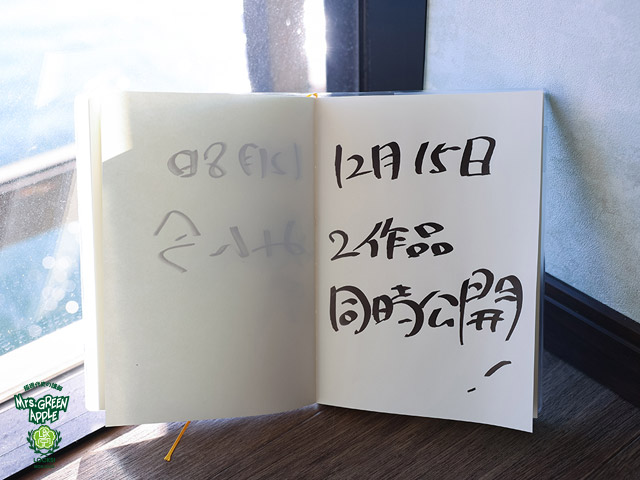 12月15日
2作品
同時公開
!
Mrs. GREEN
APPLE